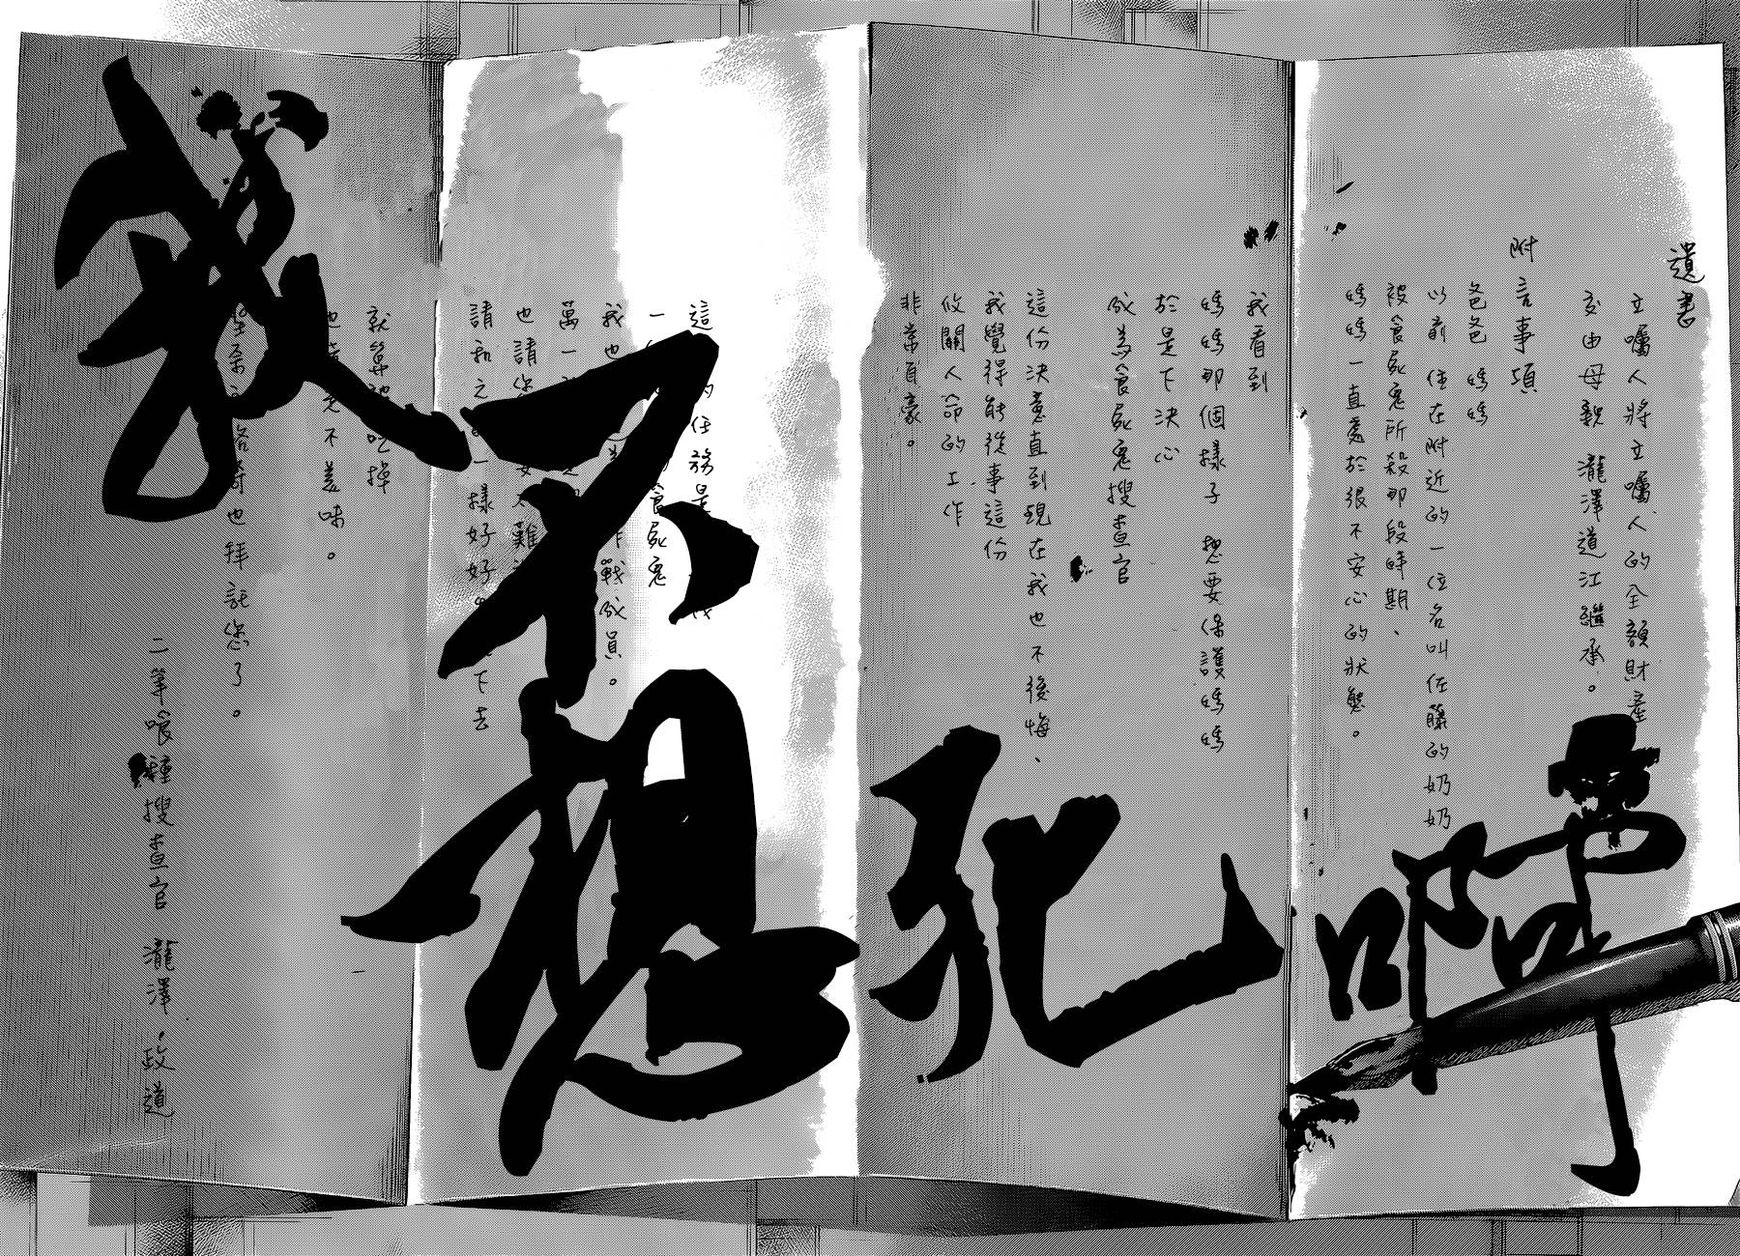 遺書
立囑人將立囑人的全額財產
交由母親 瀧澤道江繼承。
附言事項
爸爸 媽媽
以前住在附近的一位名叫佐藤的奶奶
被食屍鬼所殺那段時期、
媽媽一直處於很不安心的狀態。
我看到
媽媽那個樣子 想要保護媽媽
於是下決心
成為食屍鬼搜查官
這份決意直到現在我也不後悔、
我覺得能從事這份
攸關人命的工作
非常自豪。
這 的任務是
一 食屍鬼
我也 作戰成員。
萬一
也請 難
請和之 一樣好好 下去
就算被吃掉
也 不美味。
也拜託您了。
二等喰種搜查官 瀧澤 政道
我不想死啊